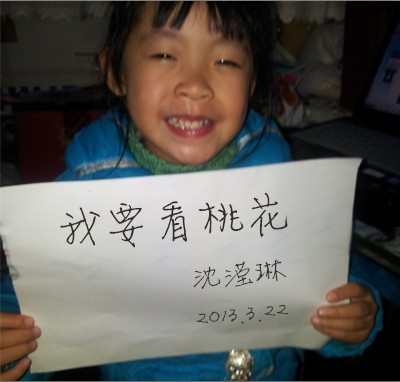 我要看桃花
沈滢琳
2013.3.22